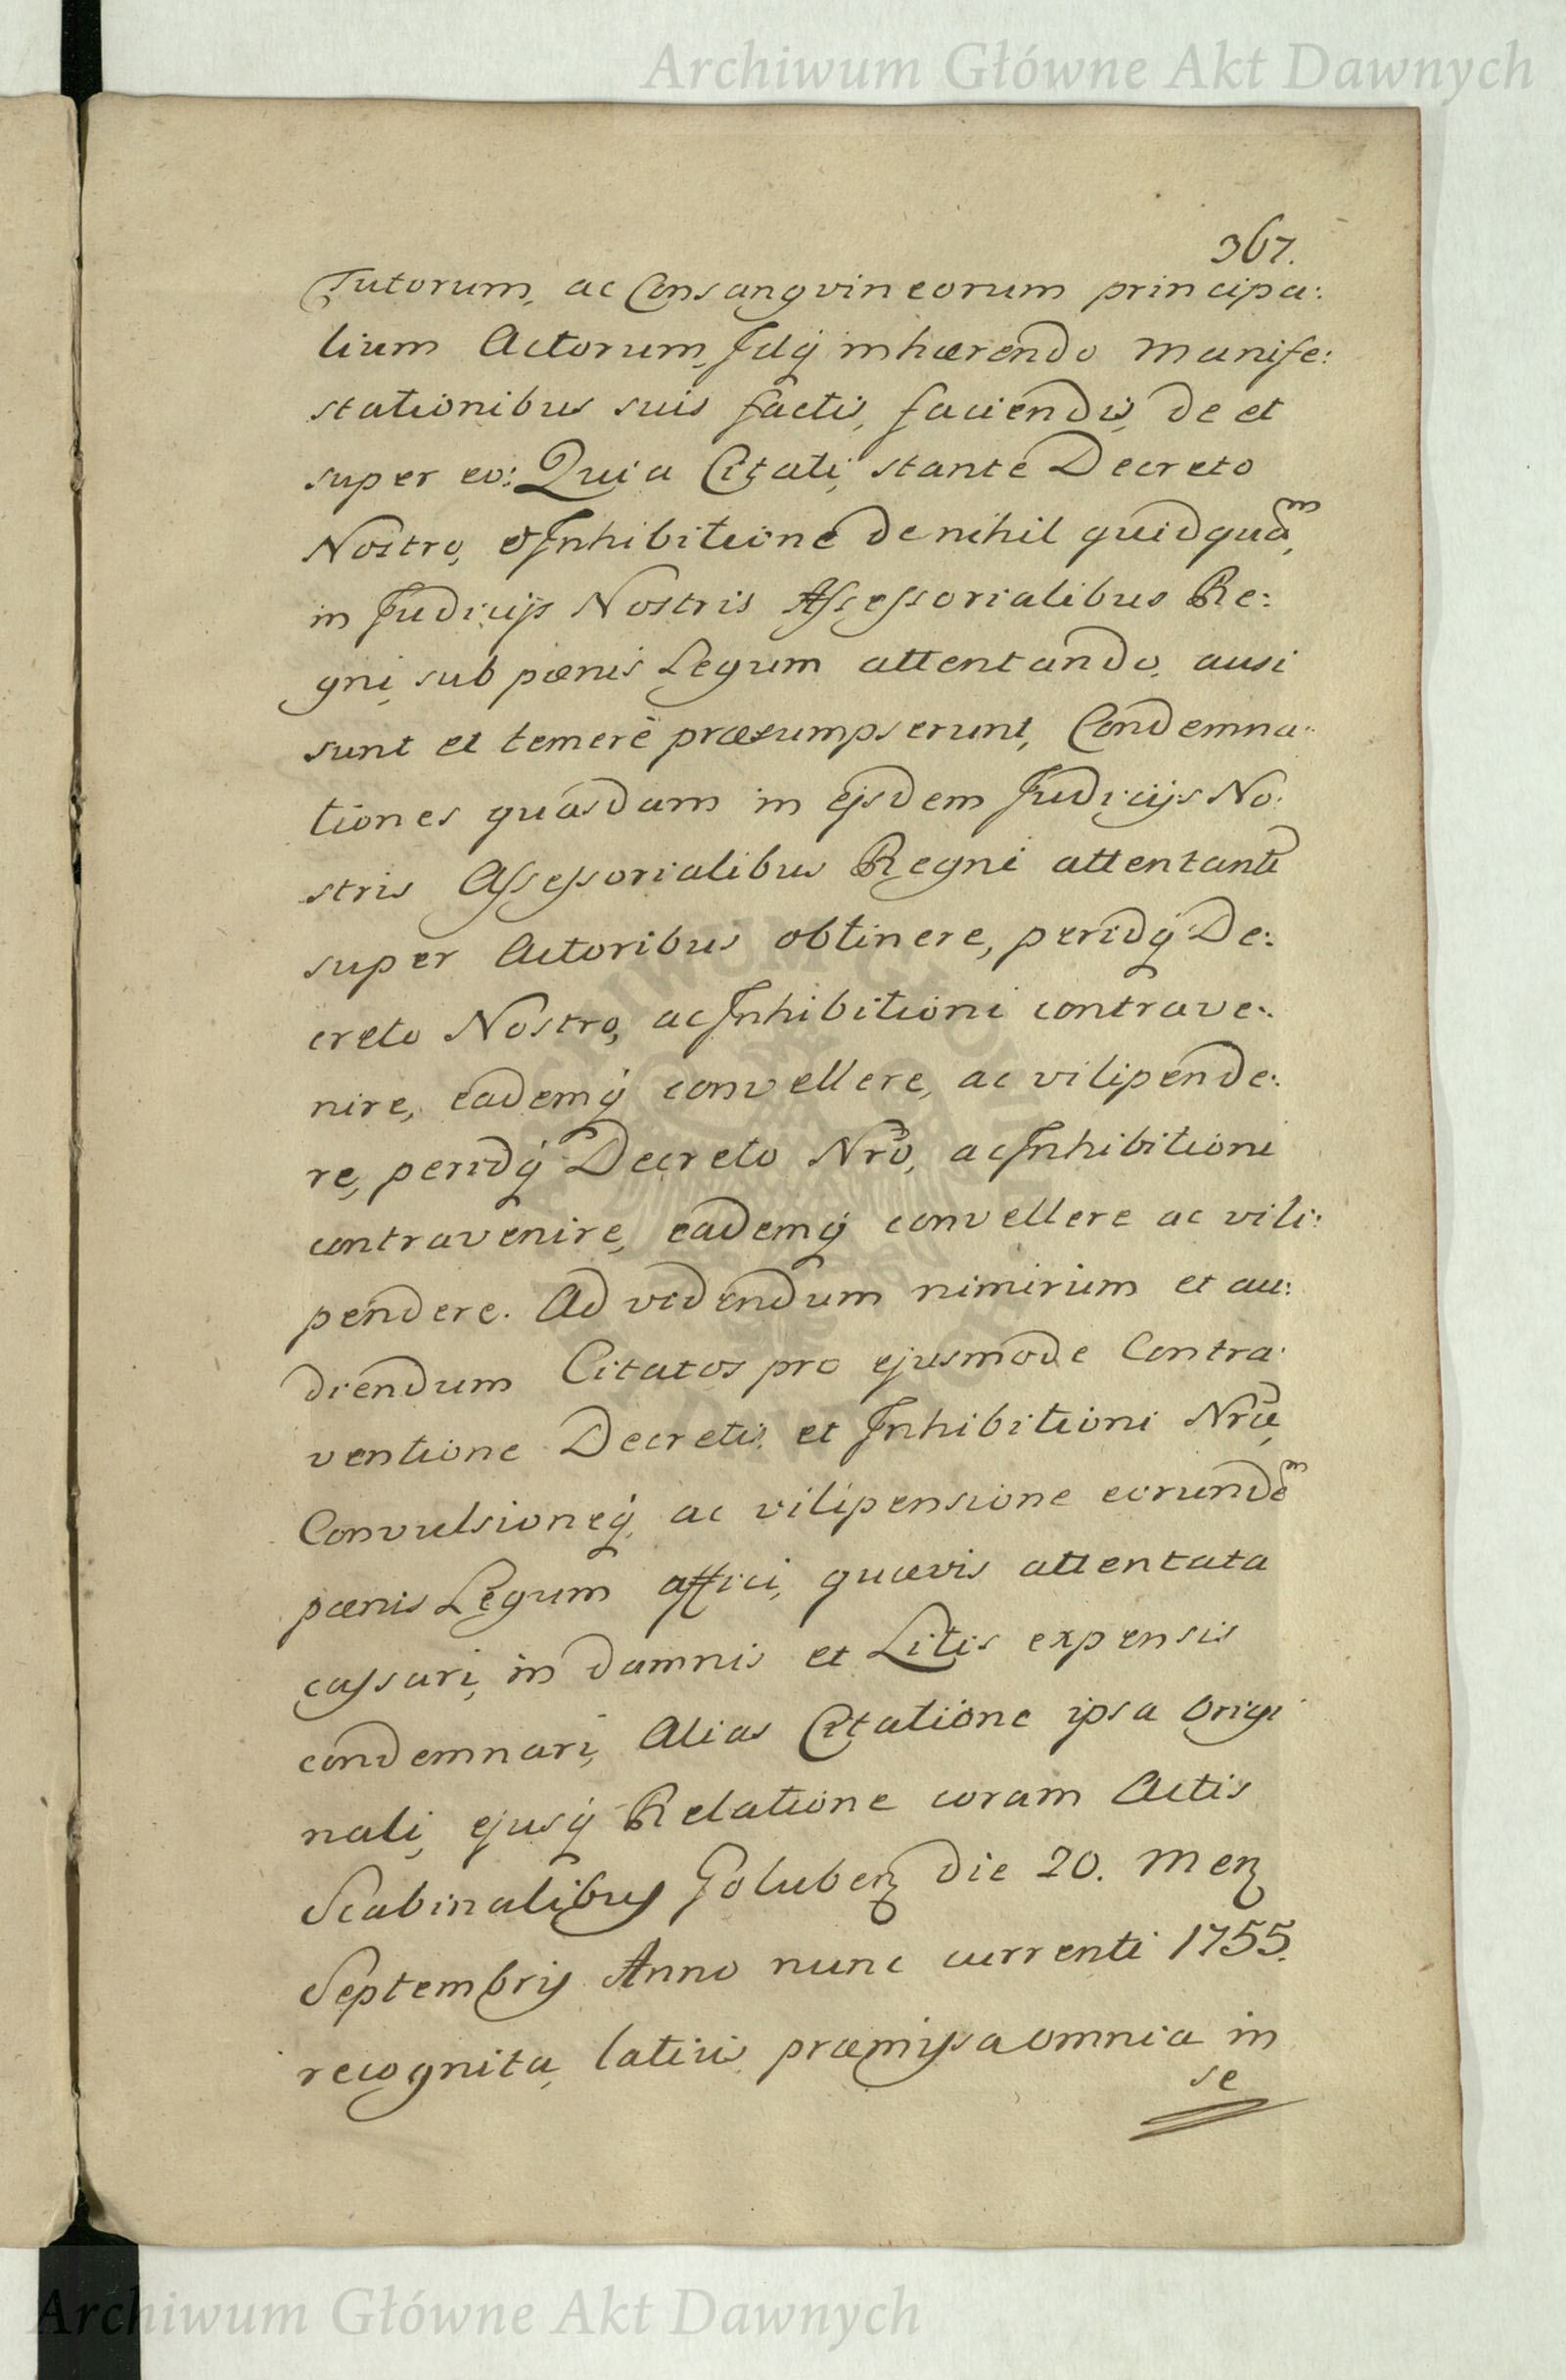 Archiwum Główne Akt Dawnych
367.
Tutorum, ac Consangvineorum principa:
lium Actorum, Idq́ inhærendo Manife:
stationibus suis factis, faciendis, de et
super eo: Quia Citati, stante Decreto
Nostro, & Inhibitione de nihil quidquam,
in Judicijs Nostris Assessorialibus Re:
gni, sub pœnis Legum attentando, ausi
sunt et temerè præsumpserunt, Condemna:
tiones quasdam in ejsdem Judicijs No:
stris Assessorialibus Regni attentantè
super Actoribus obtinere, peridq́ De:
creto Nostro, ac Inhibitioni contrave:
nire, eademq́ convellere, ac vilipende:
re, peridq́ Decreto Nrõ, ac Inhibitioni
contravenire, eademq́ convellere ac vili:
pendere. Ad videndum nimirum et au:
diendum Citatos pro ejusmodi Contra:
ventione Decretis, et Inhibitioni Nræ,
Convulsioneq́, ac vilipensione eorundem
pœnis Legum affici, quævis attentata
cassari, in damnis et Litis expensis
condemnari, Alias Citatione ipsa Origi
nali, ejusq́ Relatione coram Actis
Scabinalibus Golubenz die 20. Menz
Septembris Anno nunc currenti 1755.
recognita, latius præmissa omnia in
se
Archiwum Główne Akt Dawnych